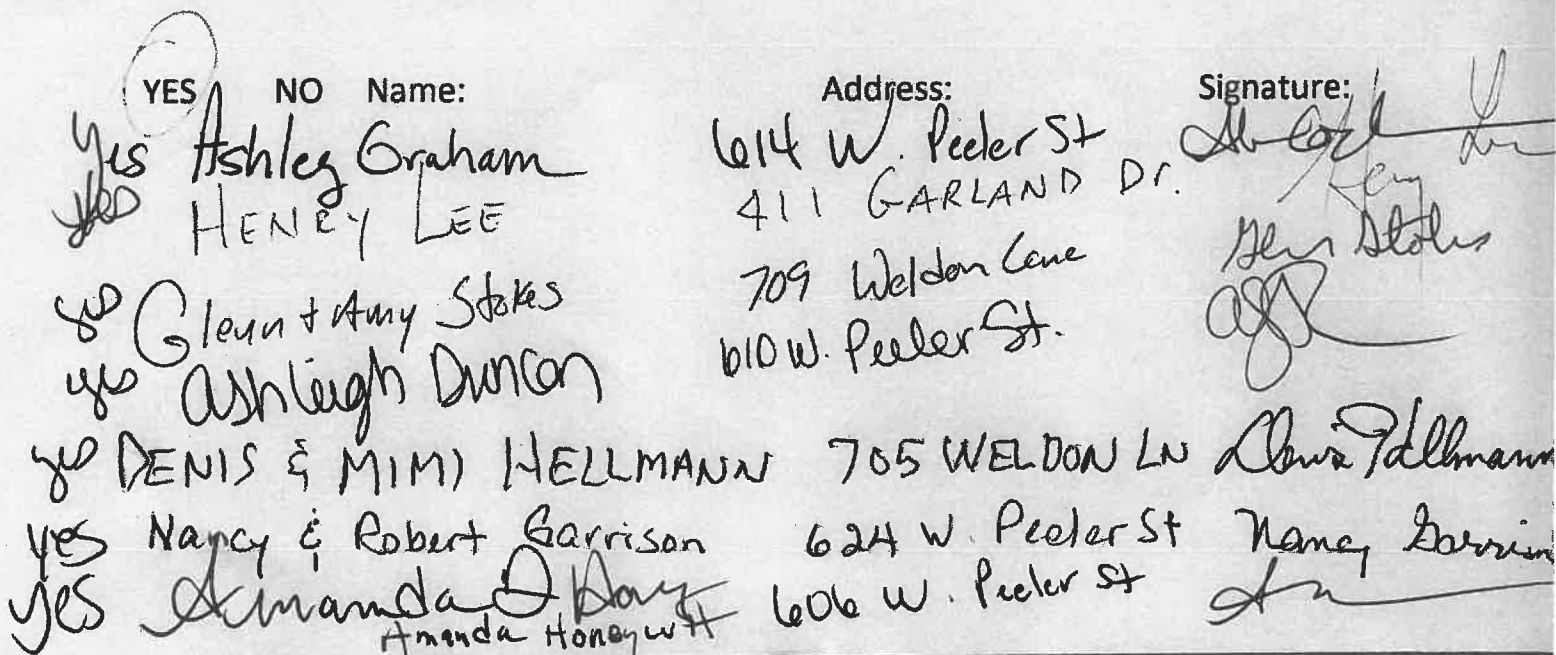 YES NO Name: Address: Signature:
Yes Ashley Graham 614 W. Peeler St
Yes HENRY LEE 411 GARLAND Dr. Henry Lee
yes Glenn + Amy Stokes 709 Weldon Lane Glenn Stokes
yes Ashleigh Duncan 610 W. Peeler St.
yes DENIS & MIMI HELLMANN 705 WELDON LN Denis Hellmann
yes Nancy & Robert Garrison 624 W. Peeler St Nancy Garrison
yes Amanda 606 W. Peeler St
Amanda Honeywitt